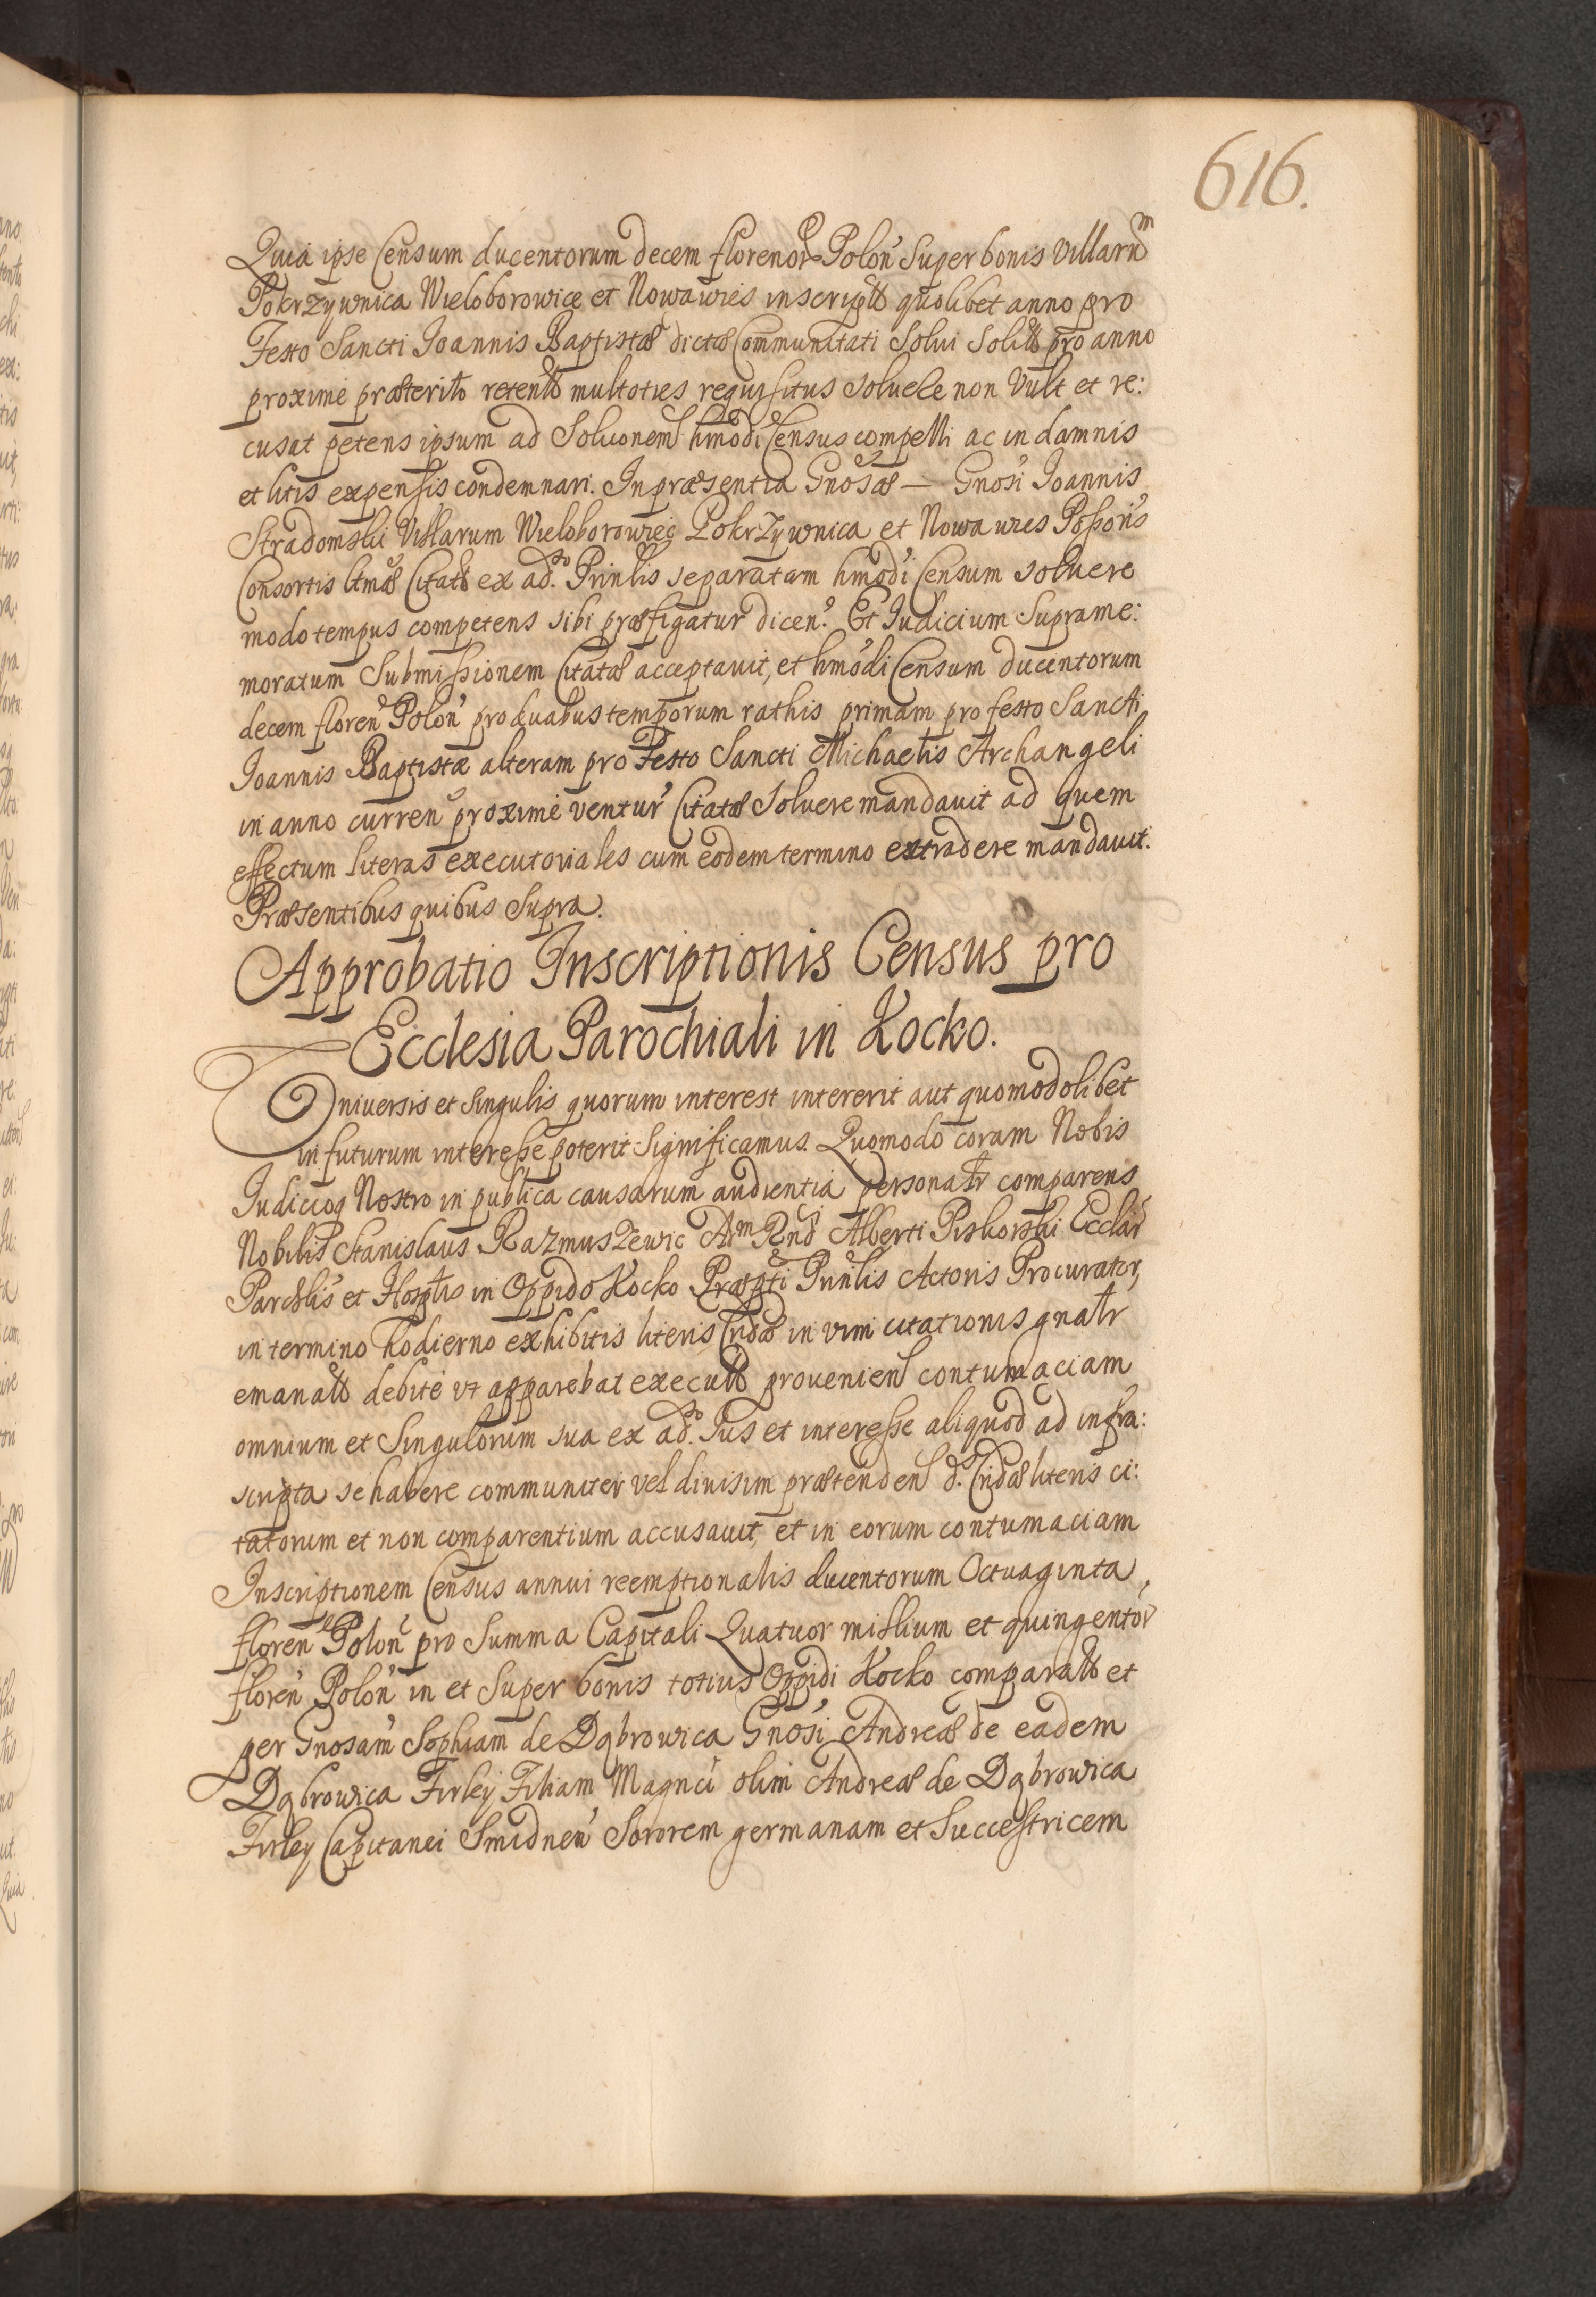 616.
Quia ipse Censum ducentorum decem florenor Polon̄ Super bonis Villarum
Pokrzywnica Wieloborowice et Nowawies inscriptũ quolibet anno pro
Festo Sancti Joannis Baptistæ dictæ Communitati Solui Solitũ pro anno
proximè præterito retentũ multoties requisitus soluere non Vult et re:
cusat petens ipsum ad Soluonem hmodi Census compelli ac in damnis
et litis expensis condemnari. In præsentia Gnosæ — Gnosi Joannis
Stradomski Villarum Wieloborowice Pokrzywnica et Nowawies Possoris
Consortis ltmæ Citatæ ex adº. Prinlis separatam hmodi Censum soluere
modo tempus competens sibi præfigatur dicen. Et Judicium Suprame:
moratum Submissionem Citatæ acceptauit, et hmodi Censum ducentorum
decem floren Polon pro duabus temporum rathis primam pro festo Sancti
Joannis Baptistæ alteram pro Festo Sancti Michaelis Archangeli
in anno curren proximè ventur Citatæ Soluere mandauit ad quem
effectum literas executoriales cum eodem termino extradere mandauit.
Præsentibus quibus Supra.
Approbatio Inscriptionis Census pro
Ecclesia Parochiali in Kocko.
Vniuersis et singulis quorum interest intererit aut quomodolibet
in futurum interesse poterit Significamus. Quomodo coram Nobis
Judicioq Nostro in publica causarum audientia personatr comparens
Nobilis Stanislaus Razmuszewic Adm Rndi Alberti Piskorski Ecclæ
Parchlis et Hosptlis in Oppido Kocko Præpti Prinlis Actoris Procurator,
in termino hodierno exhibitis literis Cridæ in vim citationis gnatr
emanatũ debitè vt apparebat executũ prouenien contumaciam
omnium et Singulorum sua ex adº. Jus et interesse aliquod ad infra:
scripta se habere communiter vel diuisim prætenden d. Cridæ literis ci:
tatorum et non comparentium accusauit, et in eorum contumaciam
Inscriptionem Census annui reemptionalis ducentorum Octuaginta,
floren Polon pro Summa Capitali Quatuor millium et quingentor
floren Polon in et Super bonis totius Oppidi Kocko comparatũ et
per Gnosam Sophiam de Dąbrowica Gnosi Andreæ de eadem
Dąbrowica Firley Filiam Magnci olim Andreæ de Dąbrowica
Firley Capitanei Smidnen Sororem germanam et Successtricem